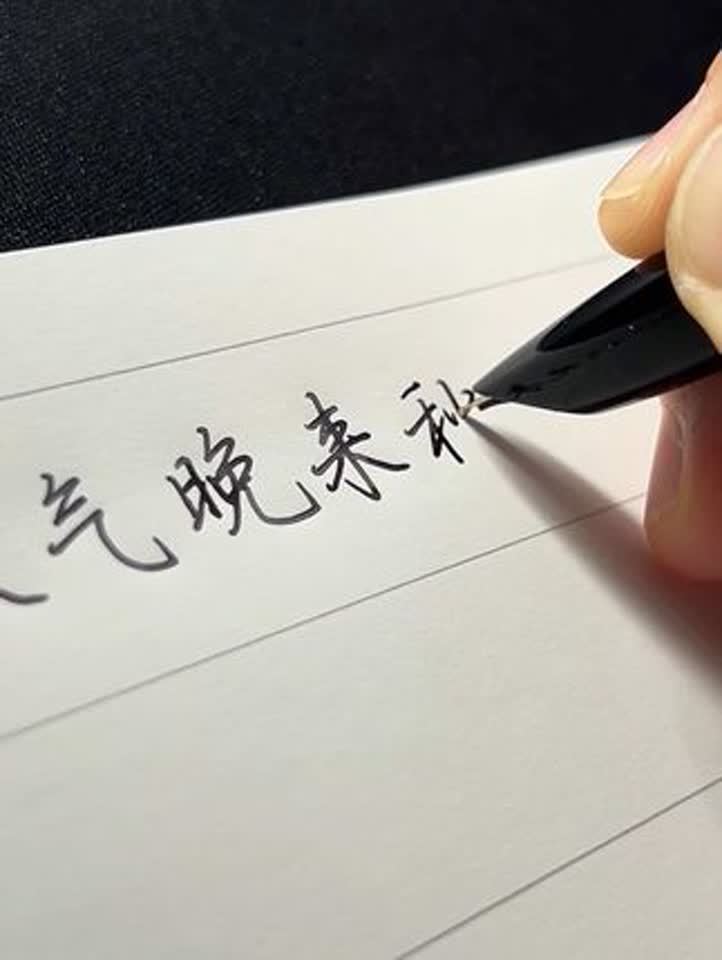 气晚来秋